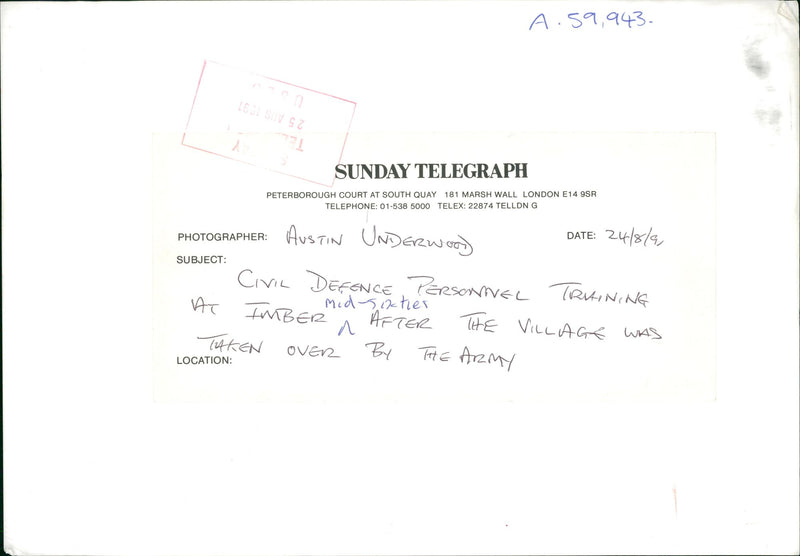 A. 59,943.
SUNDAY
TELEGRAPH
25 AUG 1991
USED
SUNDAY TELEGRAPH
PETERBOROUGH COURT AT SOUTH QUAY 181 MARSH WALL LONDON E14 9SR
TELEPHONE: 01-538 5000 TELEX: 22874 TELLDN G
PHOTOGRAPHER: AUSTIN UNDERWOOD DATE: 24/8/91
SUBJECT:
CIVIL DEFENCE PERSONNEL TRAINING
AT IMBER mid-sixties AFTER THE VILLAGE WAS
TAKEN OVER BY THE ARMY
LOCATION: